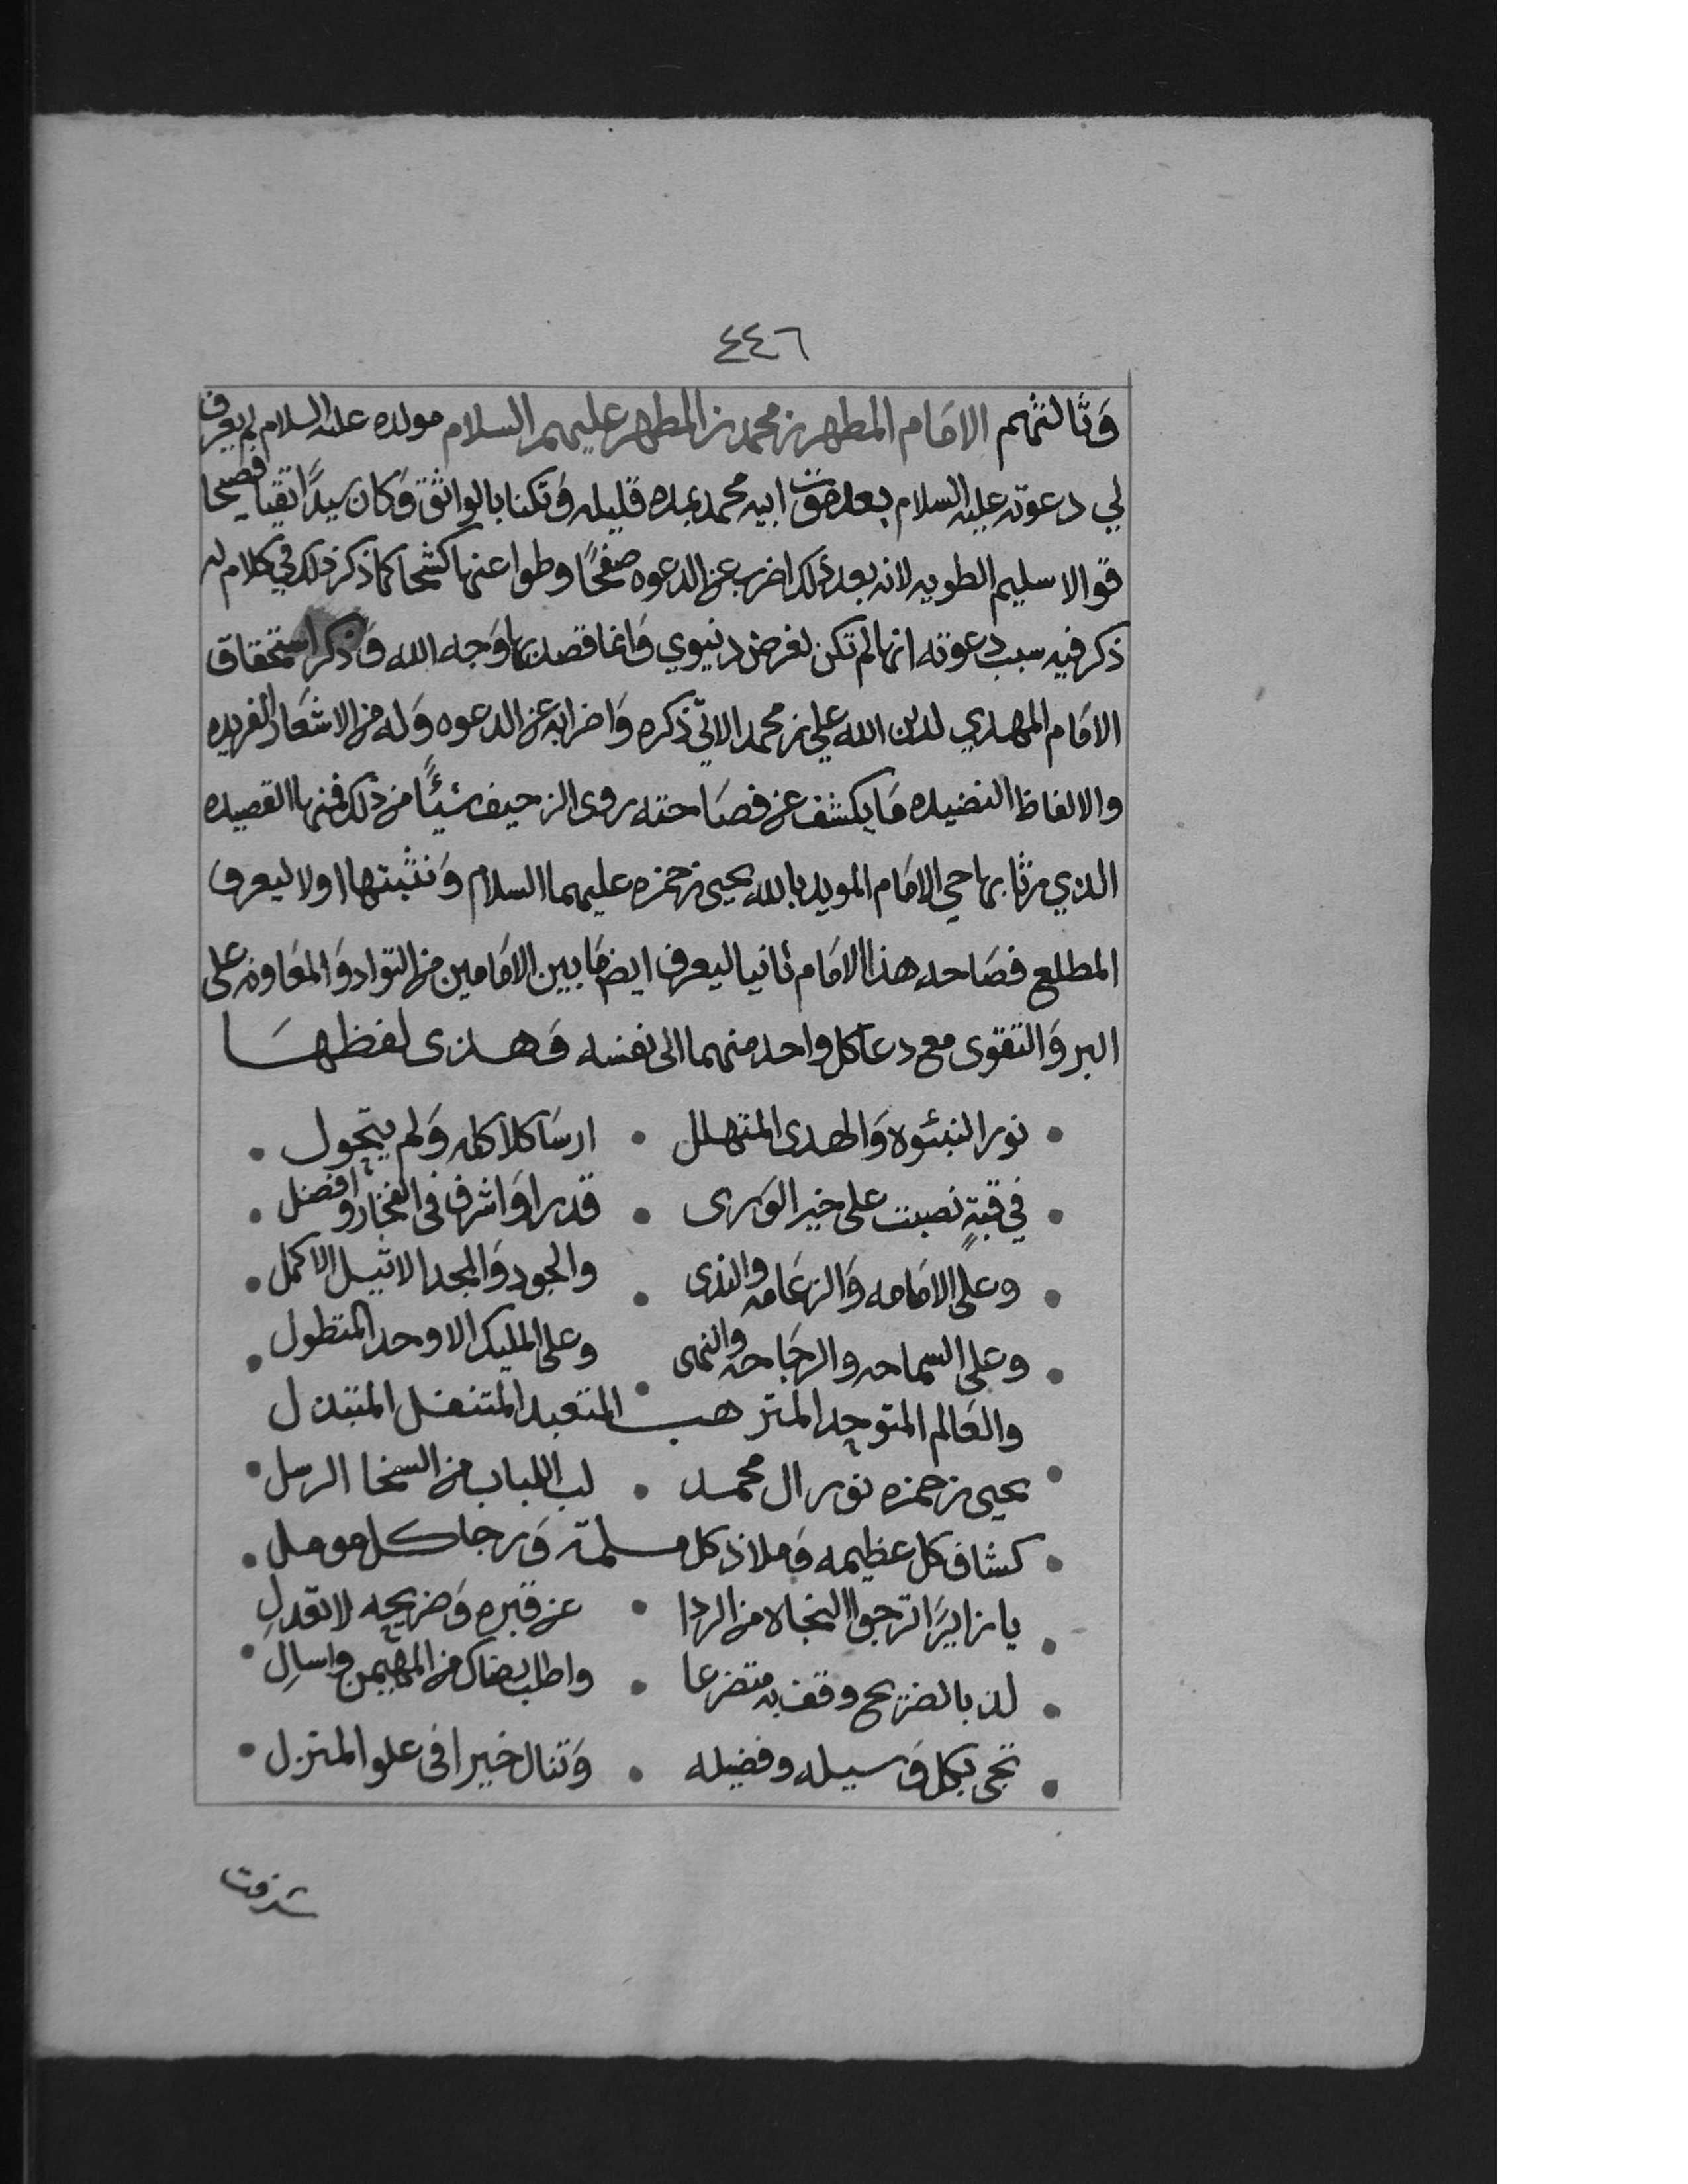 ٤٤٦
وثالثهم الامام المطهر بن محمد بن المطهر عليهم السلام مولده عليه السلام لم يعرف
لي دعوته عليه السلام بعد موت ابيه محمد بمده قليله وتكنا بالواثق وكان سيدًا تقيا فصيحا
قوالا سليم الطويه لانه بعد ذلك اضرب عن الدعوه صفحًا وطوا عنها كشحا كما ذكر ذلك في كلام له
ذكر فيه سبب دعوته انها لم تكن لغرض دنيوي وانما قصد بها وجه الله وذكر استحقاق
الامام المهدي لدين الله علي بن محمد الاتي ذكره واضرابه عن الدعوه وله من الاشعار الفريده
والالفاظ النضيده ما يكشف عن فصاحته روى الزحيف شيئًا من ذلك فمنها القصيده
الذي رثا بها حي الامام المويد بالله يحيى بن حمزه عليهما السلام ونثبتها اولا ليعرف
المطلع فصاحه هذا الامام ثانيا ليعرف ايض ما بين الامامين من التواد والمعاونه على
البر والتقوى مع دعا كل واحد منهما الى نفسه وهذى لفظها
نور النبئوه والهدى المتهلل • ارسا كلاكله ولم يتحول •
في قبةٍ نصبت على خير الورى • قدرا واشرف في الفخار وافضل •
وعلى الامامه والزعامه والندى • والجود والمجد الاثيل الاكمل •
وعلى السماحه والرجاحه والنهى • وعلى المليك الاوحد المتطول •
والعالم المتوحد المترهب المتعبد المتنفل المتبتل
يحيى بن حمزه نور ال محمد • لب اللباب من السخا الرسل •
كشاف كل عظيمه وملاذ كل مسلمة ورجا كل مومل •
يا زايرًا ترجوا النجاه من الردا • عن قبره وضريحه لا تعدلِ
لذ بالضريح وقف به متضرعا • واطلب رضاك من المهيمن واسالِ •
تحى بكل وسيله وفضيله • وتنال خيرا في علو المنزل •
شرفت